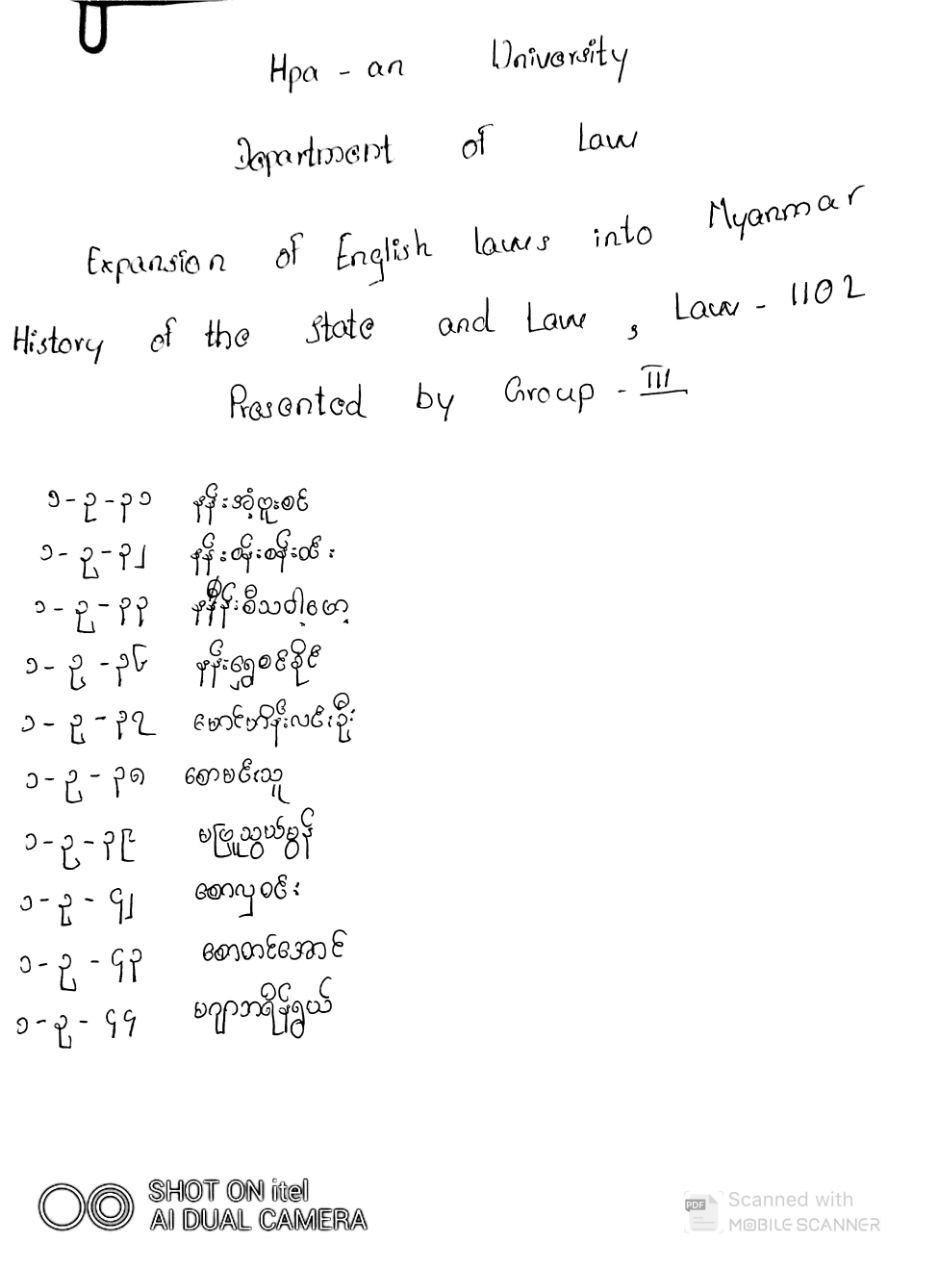 Hpa-an University
Department of Law
Expansion of English laws into Myanmar
History of the State and Law, Law-1102
Presented by Group-III
၁-ဥ-၃၁ နန်းအုံ့ဖူးစင်
၁-ဥ-၃၂ နန်းဝန်းစန်းထီး
၁-ဥ-၃၃ စီသဝါ့ဖော့
၁-ဥ-၃၆ နန်းရွှေစင်ခိုင်
၁-ဥ-၃၇ မောင်ဟိန်းလင်းဦး
၁-ဥ-၃၈ စောမင်းသူ
၁-ဥ-၃၉ မဖြူသွယ်မွန်
၁-ဥ-၄၂ စောလှဝင်း
၁-ဥ-၄၃ စောတင်အောင်
၁-ဥ-၄၄ မဂျာဘရိန်ရွှယ်
SHOT ON itel
AI DUAL CAMERA
PDF Scanned with
MOBILE SCANNER